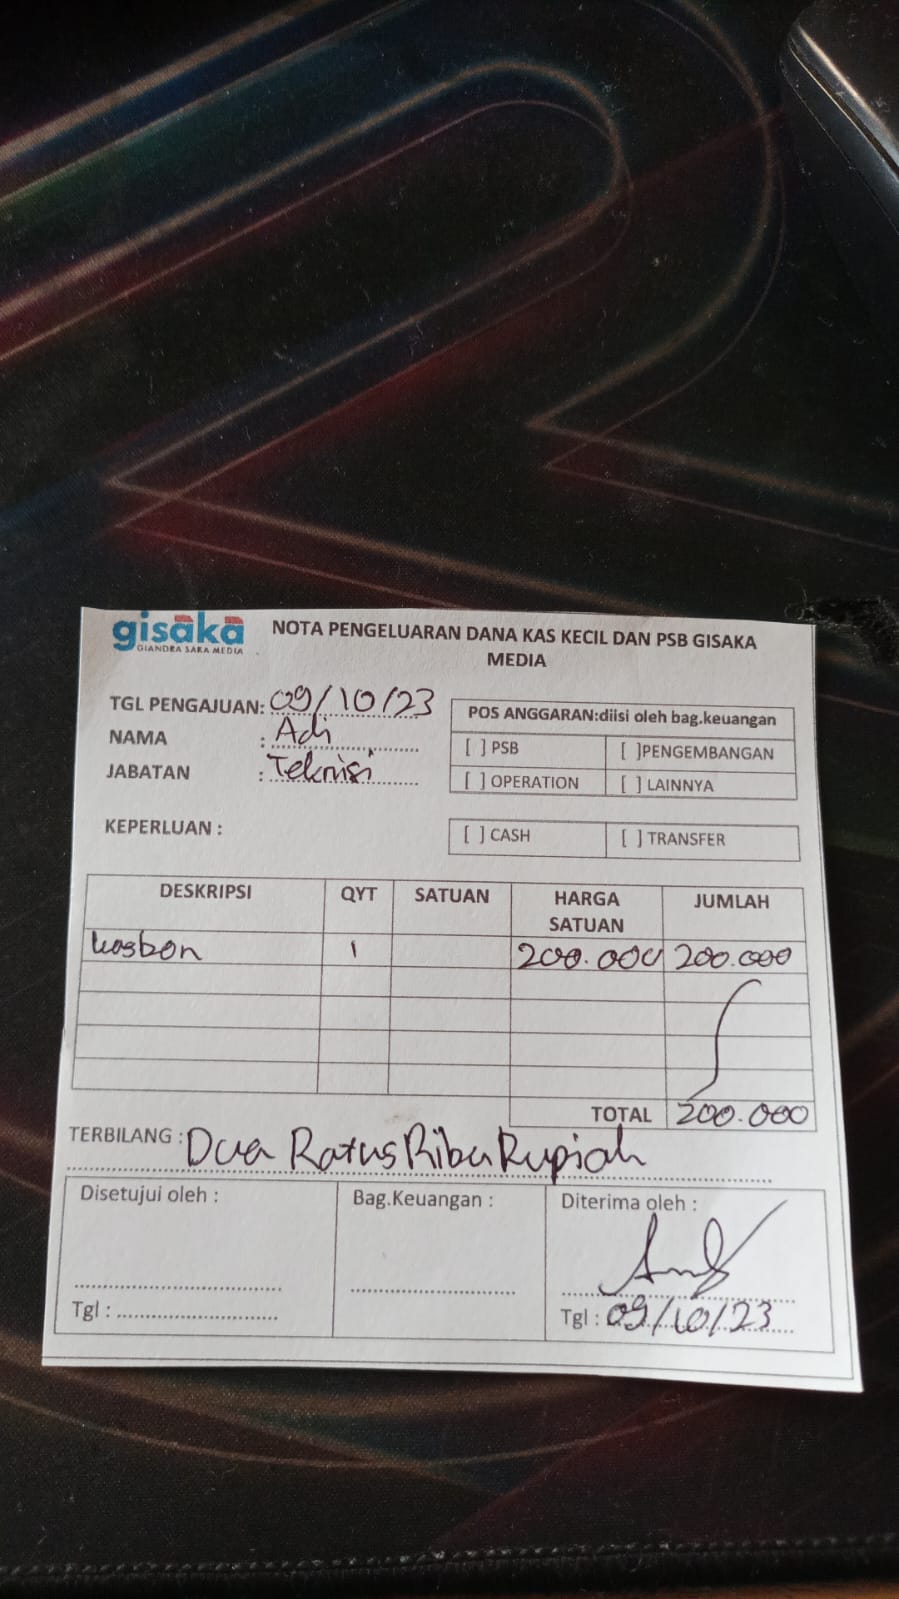 gisaka
GIANDRA SAKA MEDIA
NOTA PENGELUARAN DANA KAS KECIL DAN PSB GISAKA
MEDIA
TGL PENGAJUAN: 09/10/23
NAMA : Adi
JABATAN : Teknisi
POS ANGGARAN:diisi oleh bag.keuangan
[ ] PSB [ ]PENGEMBANGAN
[ ] OPERATION [ ] LAINNYA
KEPERLUAN :
[ ] CASH [ ] TRANSFER
DESKRIPSI QYT SATUAN HARGA SATUAN JUMLAH
kasbon 1 200.000 200.000
TOTAL 200.000
TERBILANG : Dua Ratus Ribu Rupiah
Disetujui oleh : Bag.Keuangan : Diterima oleh :
Tgl : Tgl : 09/10/23